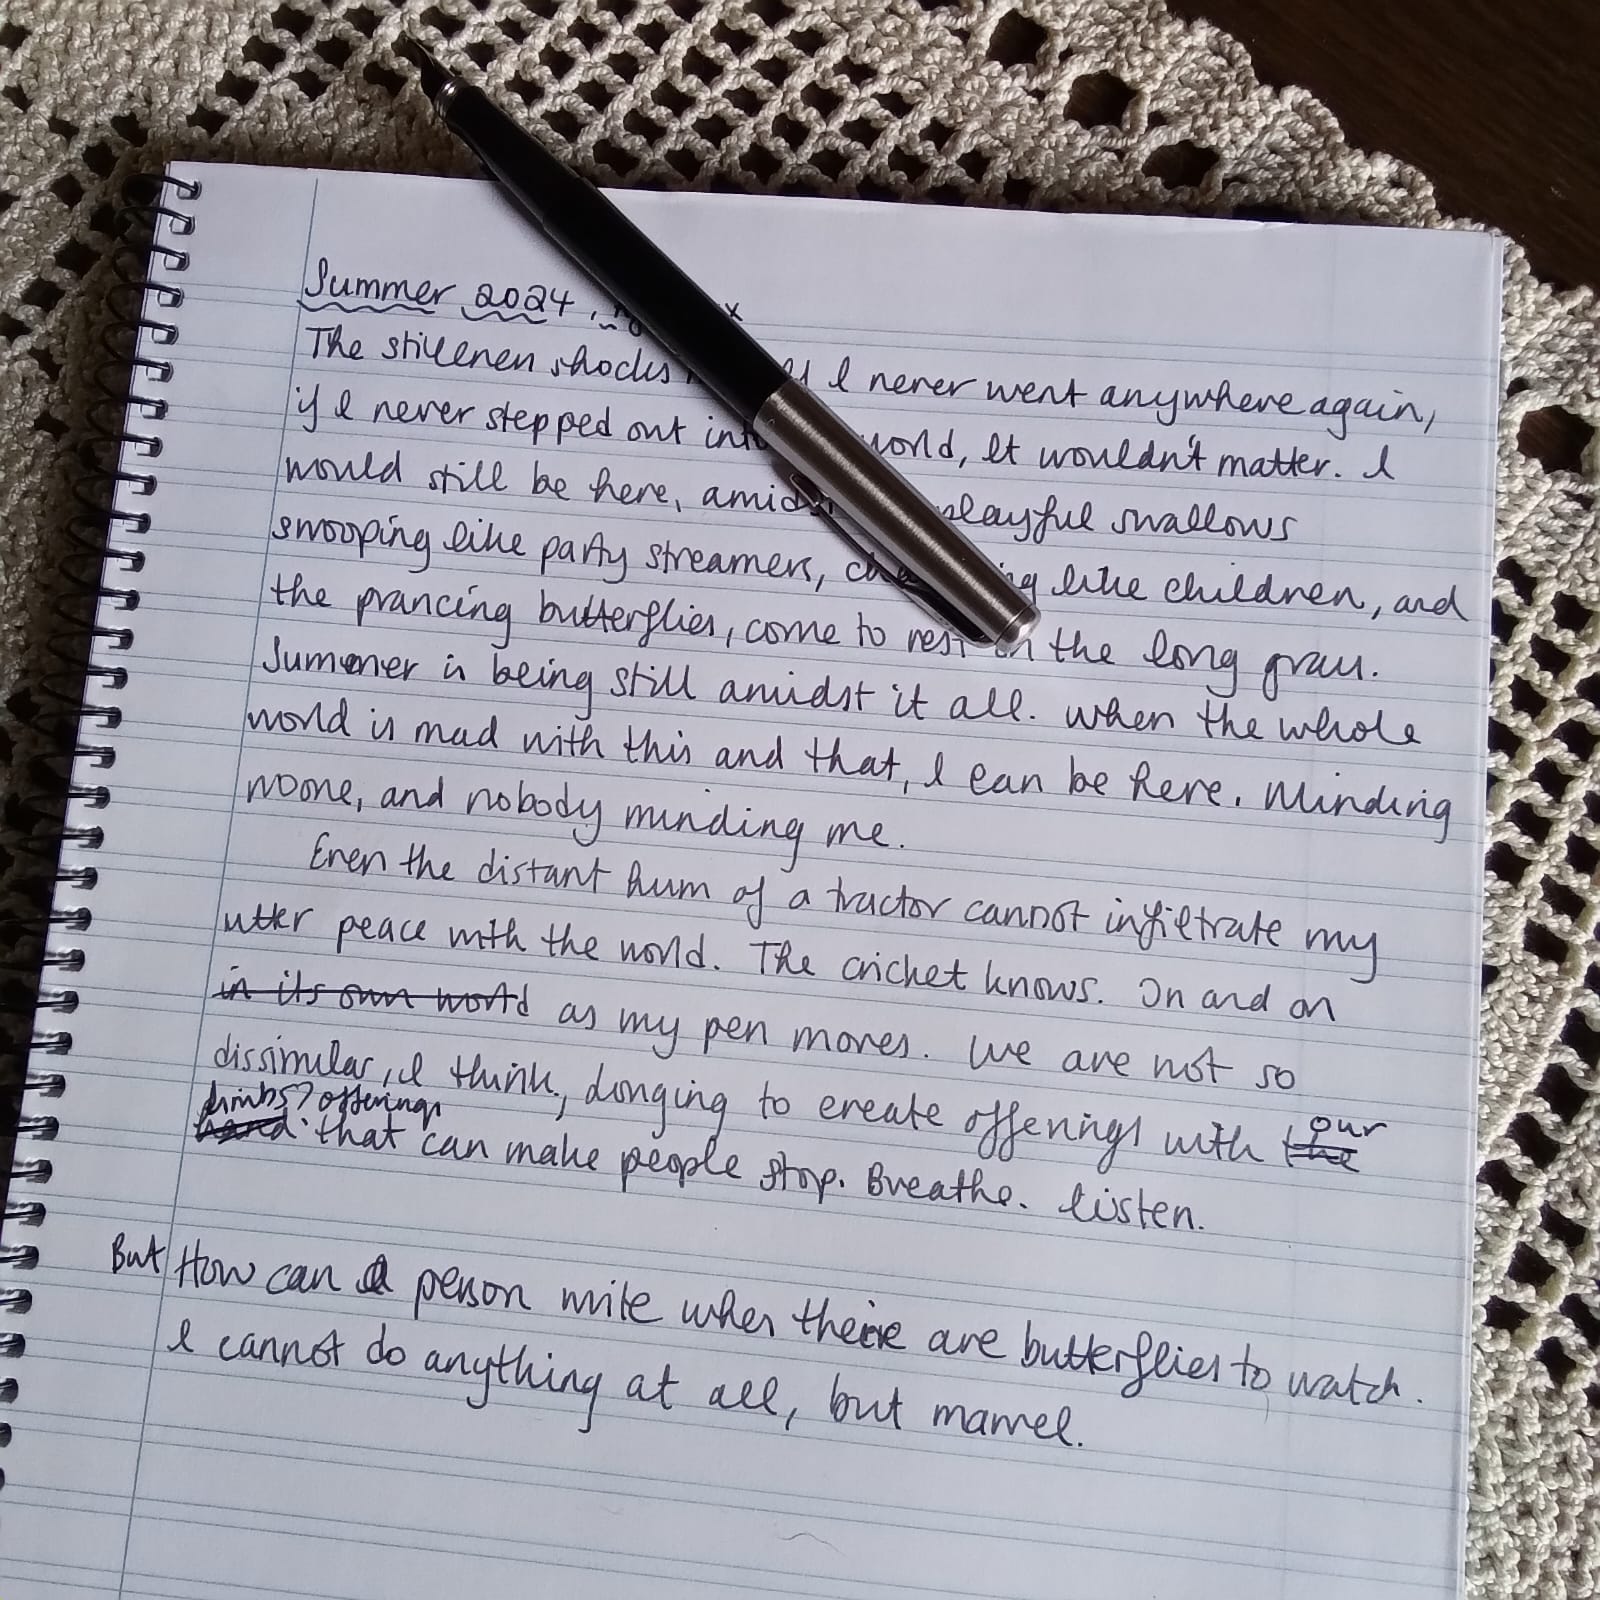 Summer 2024,
The stillness shocks I never went anywhere again,
if I never stepped out into world, It wouldn't matter. I
would still be here, amidst playful swallows
swooping like party streamers, like children, and
the prancing butterflies, come to rest in the long grass.
Summer is being still amidst it all. When the whole
world is mad with this and that, I can be here. Minding
noone, and nobody minding me.
Even the distant hum of a tractor cannot infiltrate my
utter peace with the world. The cricket knows. On and on
in its own world as my pen moves. We are not so
dissimilar, I think, longing to create offerings with the our
hand. limbs? offerings that can make people stop. Breathe. Listen.
But How can a person write when there are butterflies to watch.
I cannot do anything at all, but marvel.